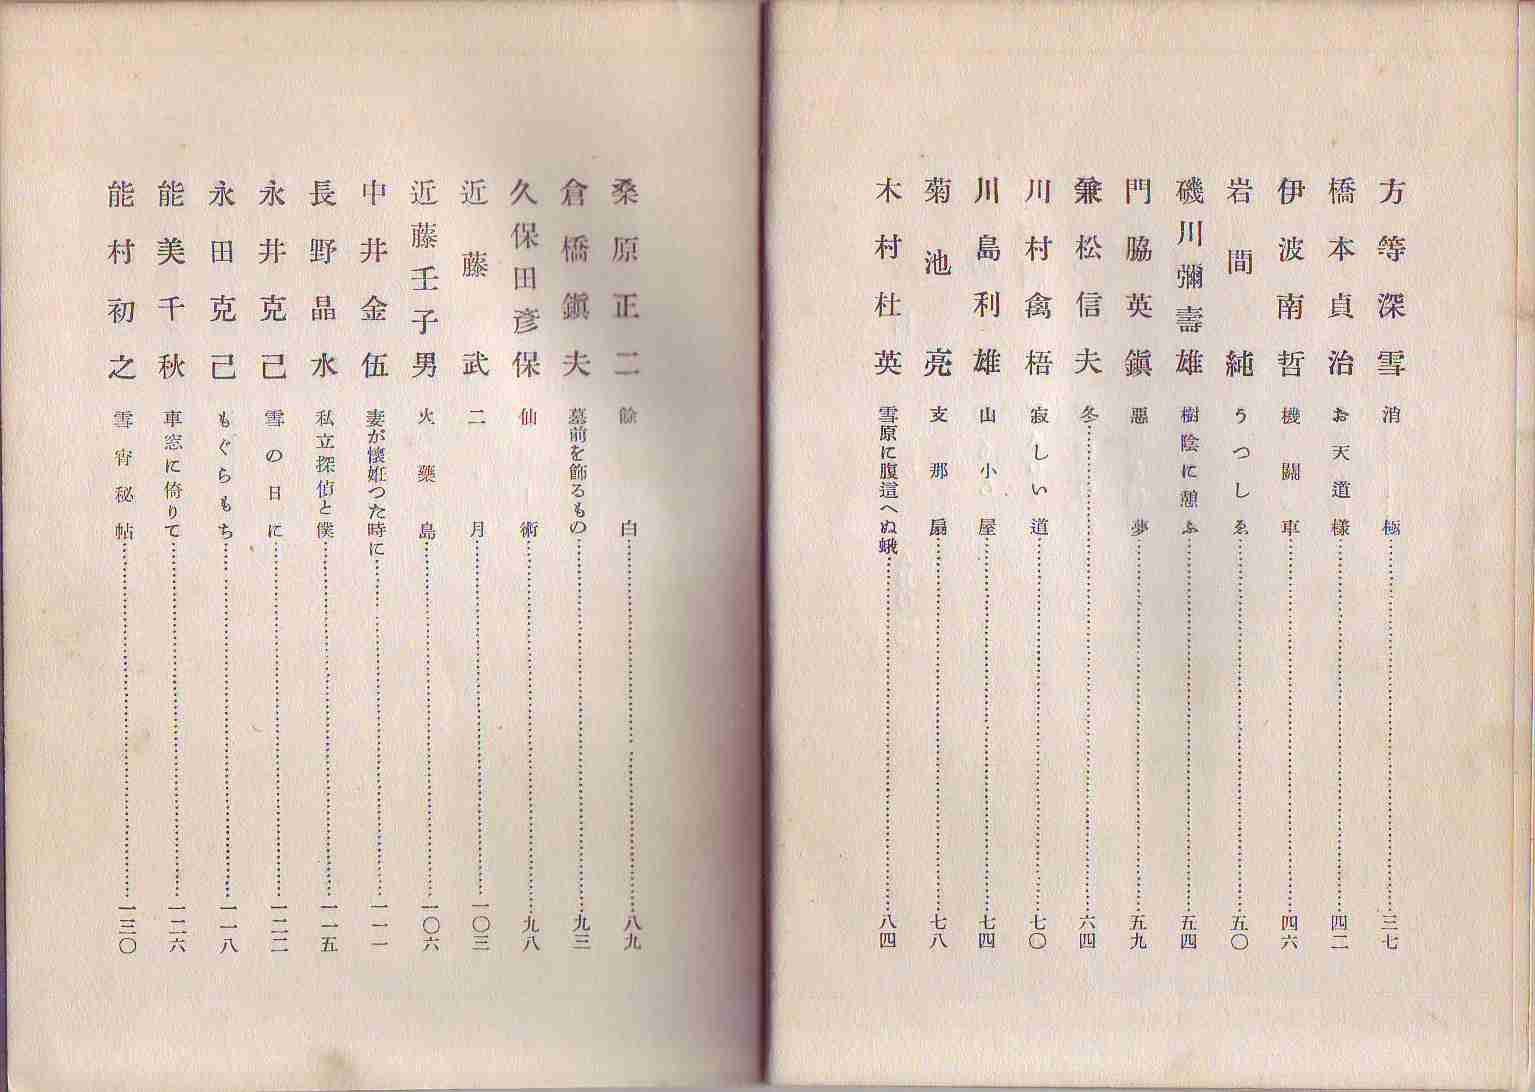 方等深雪 消極…………三七
橋本貞治 お天道様…………四二
伊波南哲 機關車…………四六
岩間純 うつしゑ…………五〇
磯川彌壽雄 樹陰に憩ふ…………五四
門脇英鎭 惡夢…………五九
兼松信夫 冬…………六四
川村禽梧 寂しい道…………七〇
川島利雄 山小屋…………七四
菊池亮 支那扇…………七八
木村杜英 雪原に腹這へぬ蛾…………八四
桑原正二 餘白…………八九
倉橋鎭夫 墓前を飾るもの…………九三
久保田彦保 仙術…………九八
近藤武 二月…………一〇三
近藤壬子男 火藥島…………一〇六
中井金伍 妻が懷姙つた時に…………一一一
長野晶水 私立探偵と僕…………一一五
永井克己 雪の日に…………一二二
永田克己 もぐらもち…………一一八
能美千秋 車窓に倚りて…………一二六
能村初之 雪宵秘帖…………一三〇